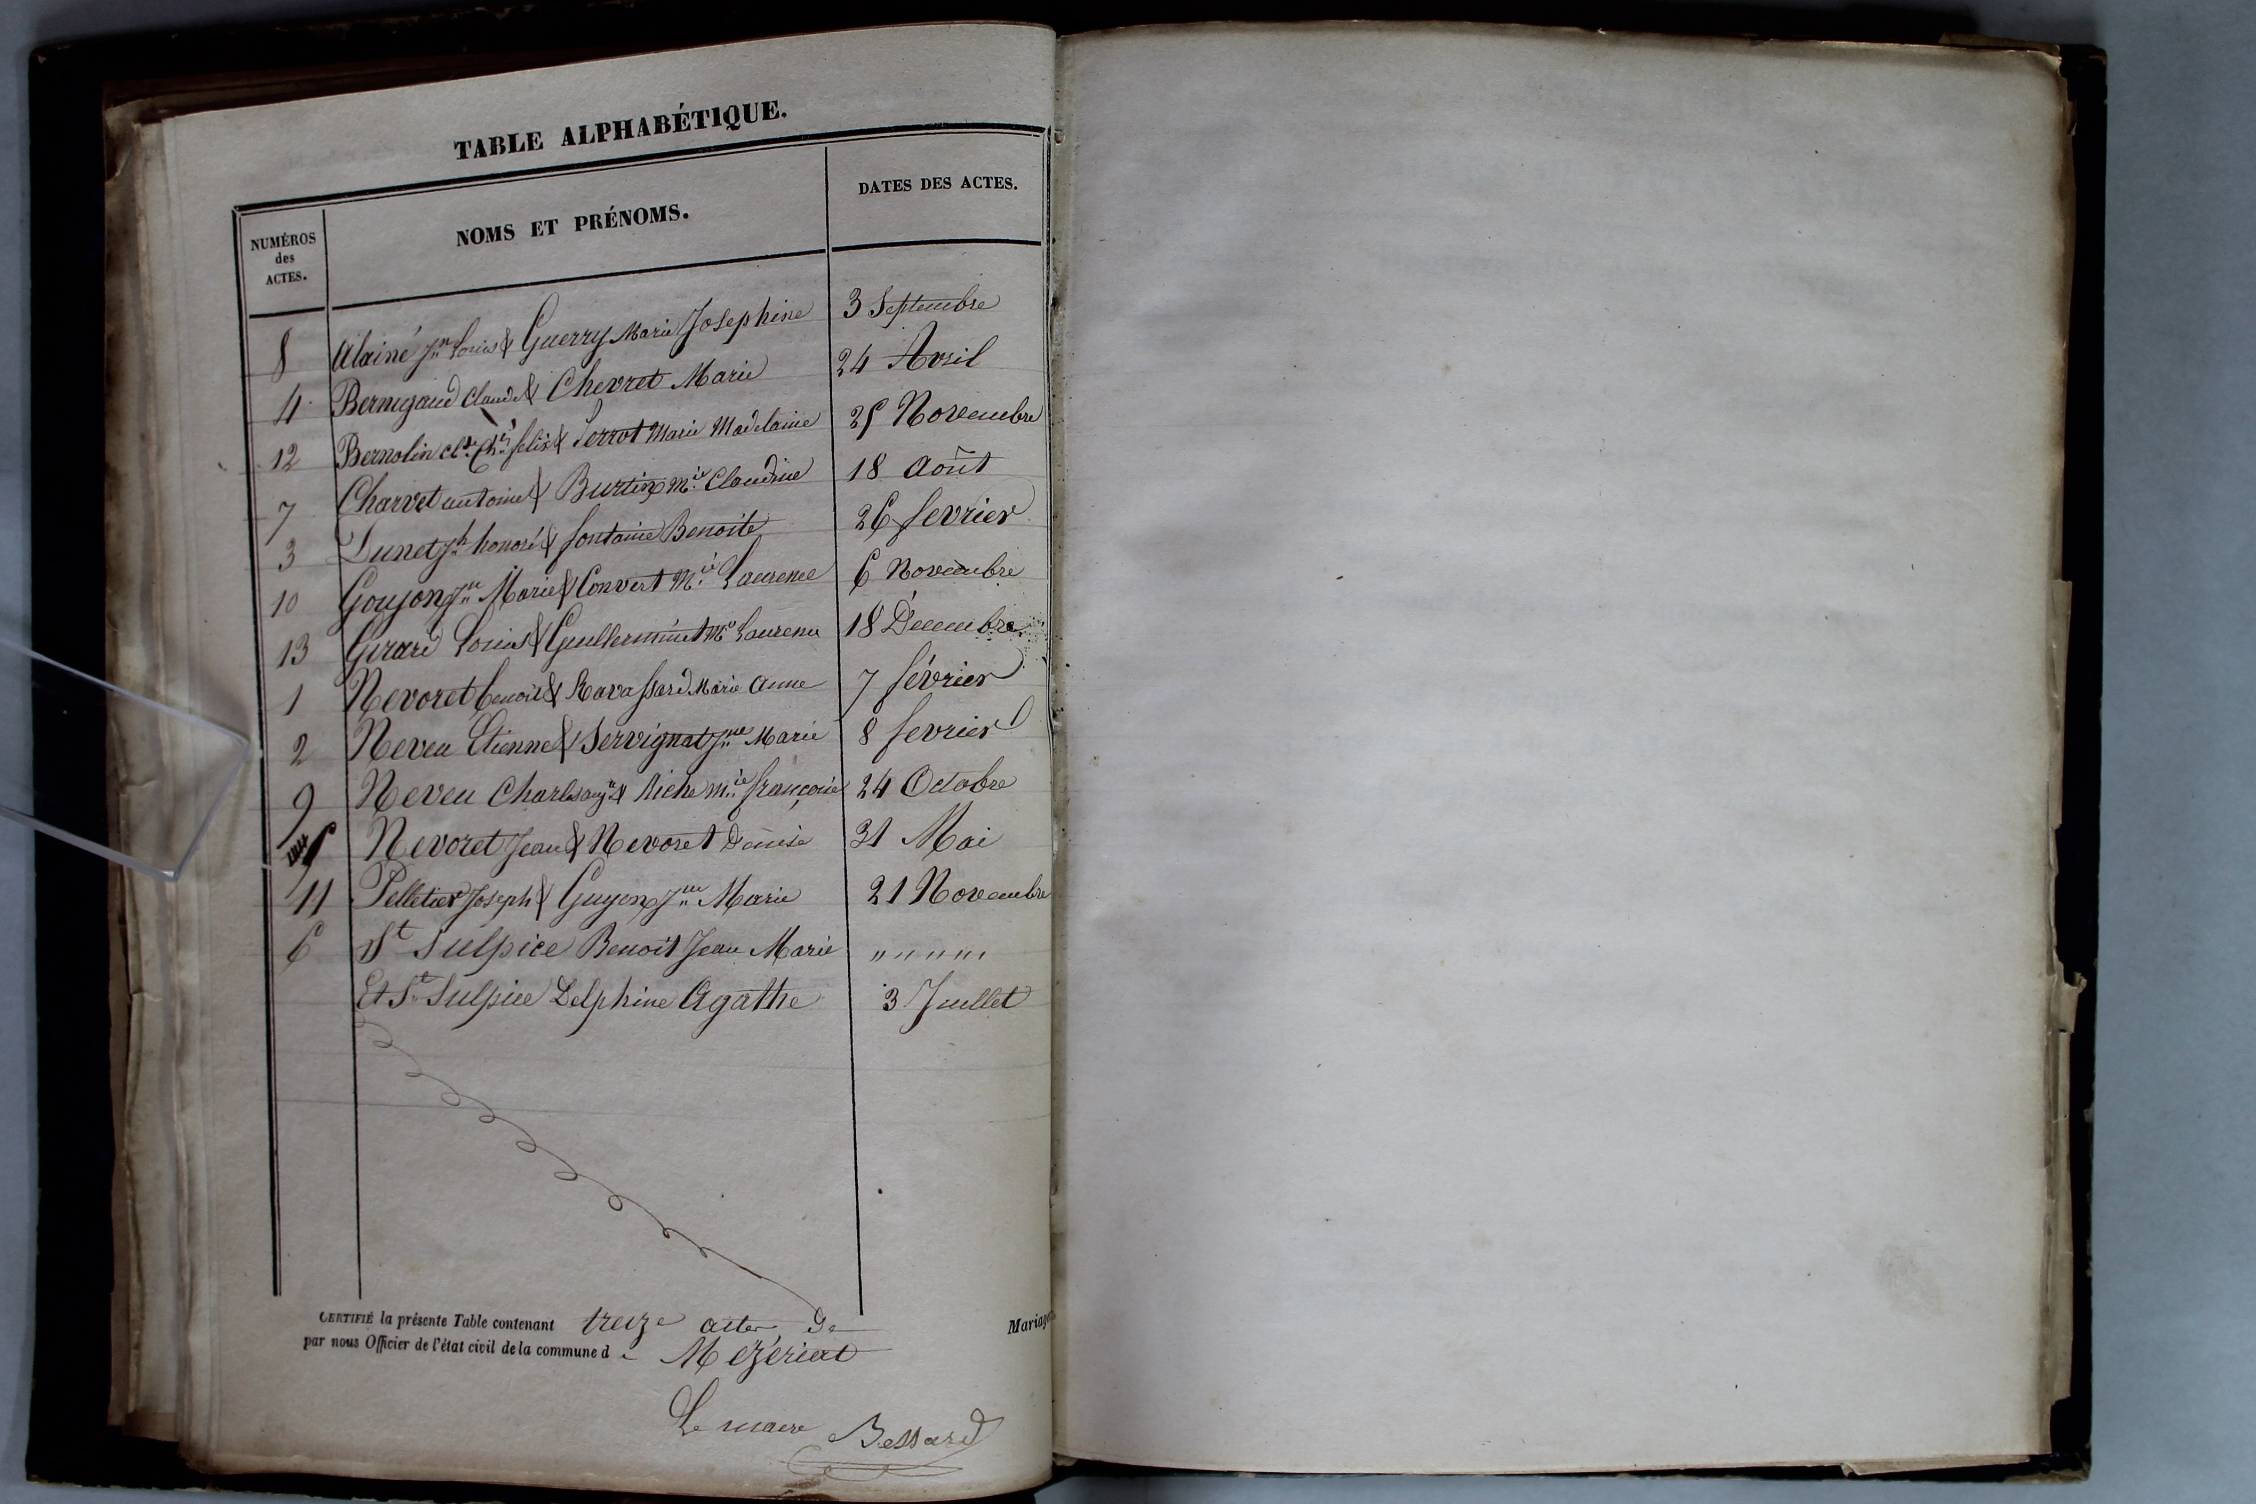 TABLE ALPHABÉTIQUE.
NUMÉROS des ACTES. NOMS ET PRÉNOMS. DATES DES ACTES.
8 Alainé Jn Louis & Guerry Marie Josephine 3 Septembre
4 Bernigaud Claude & Chevret Marie 24 Avril
12 Bernolin Cl. felix & Serrot Marie Madelaine 25 Novembre
7 Charvet antoine & Burtin Mie Claudine 18 Août
3 Lunet Jh honoré & fontaine Benoite 26 fevrier
10 Goyon Jn Marie & Convert Mie Laurence 6 Novembre
13 Girard Louis & Guillerminet Mie Laurence 18 Décembre
1 Nevoret benoit & Ravassard Marie Anne 7 février
2 Neveu Etienne & Servignat Jne Marie 8 fevrier
9 Neveu Charles & Riche Mie françoise 24 Octobre
5 Nevoret Jean & Nevoret Denise 31 Mai
11 Pelletier Joseph & Guyon Jne Marie 21 Novembre
6 St Sulpice Benoit Jean Marie " " " " "
Et St Sulpice Delphine Agathe 3 Juillet
CERTIFIÉ la présente Table contenant treize actes de
par nous Officier de l'état civil de la commune d e Mézériat
Mariages
Le maire Bessard